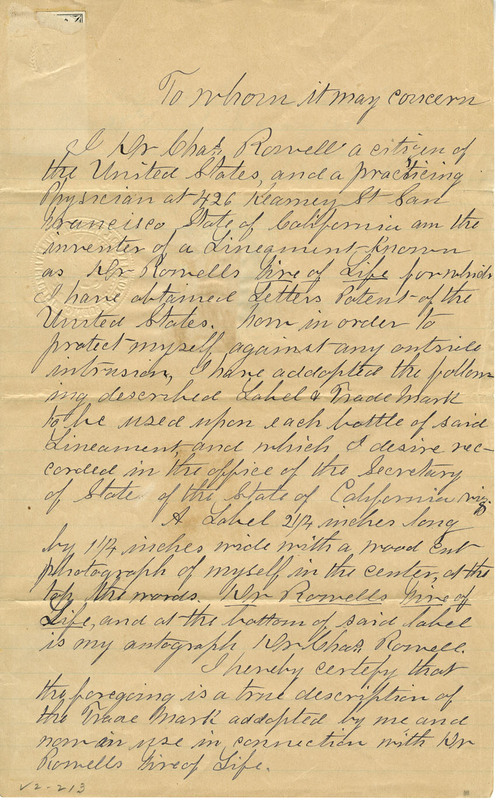 To whom it may concern
I Dr Chas. Rowell a citizen of
the United States, and a practicing
Physician at 426 Kearney St San
Francisco, State of California am the
inventer of a Lineament Known
as Dr Rowells Fire of Life for which
I have obtained Letters Patent of the
United States. Now in order to
protect myself against any outside
intrusion, I have addopted the follow-
ing described Label & Trade Mark
to be used upon each bottle of said
Lineament, and which I desire rec-
corded in the office of the Secretary
of State of the State of California viz
A Label 2 1/4 inches long
by 1 1/4 inches wide with a wood cut
photograph of myself in the center, at the
top the words. Dr Rowells Fire of
Life, and at the bottom of said label
is my autograph Dr Chas. Rowell.
I hereby certify that
the foregoing is a true description of
the Trade Mark addopted by me and
now in use in connection with Dr
Rowells Fire of Life.
V2-213